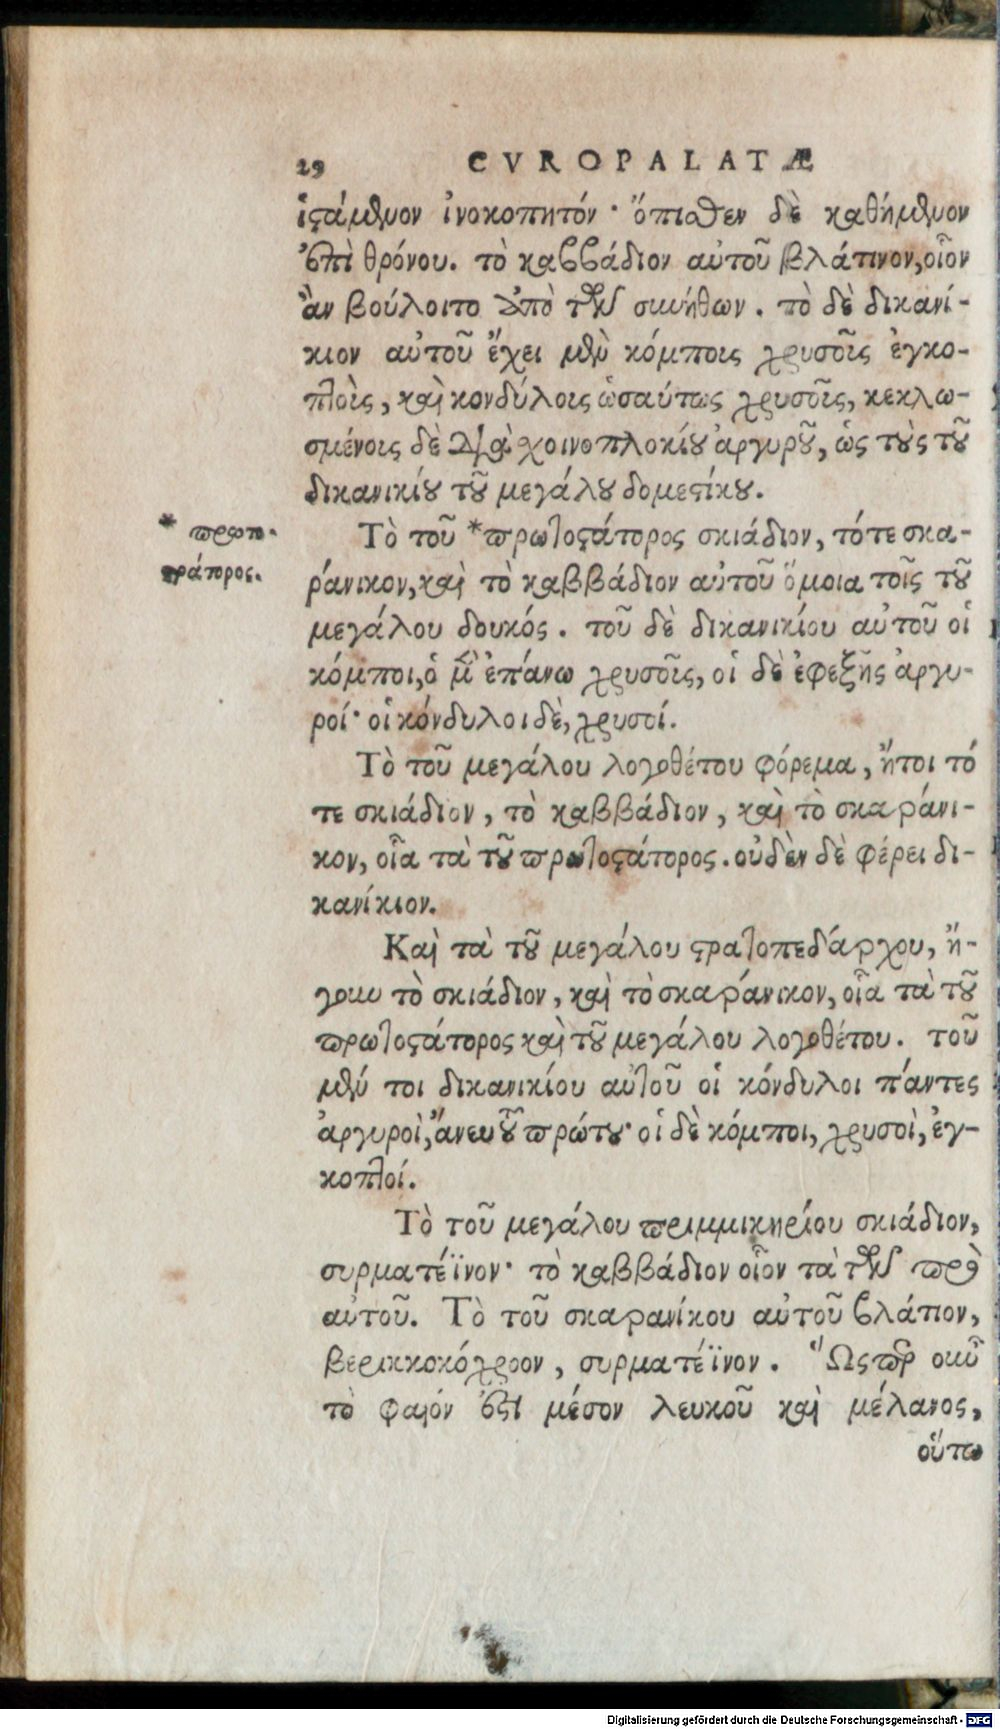 29 CVROPALATÆ
ἱστάμενον ἰνοκοπητόν· ὄπισθεν δὲ καθήμενον
ἐπὶ θρόνου. τὸ καββάδιον αὐτοῦ βλάτινον, οἷον
ἂν βούλοιτο ἀπὸ τῶν συνήθων. τὸ δὲ δικανί-
κιον αὐτοῦ ἔχει μὲν κόμποις χρυσοῖς ἐγκο-
πτοῖς, καὶ κονδύλοις ὡσαύτως χρυσοῖς, κεκλω-
σμένοις δὲ διὰ χοινοπλοκίου ἀργυροῦ, ὡς τοὺς τοῦ
δικανικίου τοῦ μεγάλου δομεστίκου.
Τὸ τοῦ *πρωτοστάτορος σκιάδιον, τότε σκα-
ράνικον, καὶ τὸ καββάδιον αὐτοῦ ὅμοια τοῖς τοῦ
μεγάλου δουκός. τοῦ δὲ δικανικίου αὐτοῦ οἱ
κόμποι, ὁ μὲν ἐπάνω χρυσοῖς, οἱ δὲ ἐφεξῆς ἀργυ-
ροί· οἱ κόνδυλοι δὲ, χρυσοί.
* πρωτο-
στράτορος.
Τὸ τοῦ μεγάλου λογοθέτου φόρεμα, ἤτοι τό
τε σκιάδιον, τὸ καββάδιον, καὶ τὸ σκαράνι-
κον, οἷα τὰ τοῦ πρωτοστάτορος. οὐδὲν δὲ φέρει δι-
κανίκιον.
Καὶ τὰ τοῦ μεγάλου στρατοπεδάρχου, ἤ-
γουν τὸ σκιάδιον, καὶ τὸ σκαράνικον, οἷα τὰ τοῦ
πρωτοστάτορος καὶ τοῦ μεγάλου λογοθέτου. τοῦ
μέν τοι δικανικίου αὐτοῦ οἱ κόνδυλοι πάντες
ἀργυροὶ, ἄνευ τοῦ πρώτου· οἱ δὲ κόμποι, χρυσοὶ, ἐγ-
κοπτοί.
Τὸ τοῦ μεγάλου πριμμικηρίου σκιάδιον,
συρματέϊνον· τὸ καββάδιον οἷον τὰ τῶν πρὸ
αὐτοῦ. Τὸ τοῦ σκαρανίκου αὐτοῦ βλάτιον,
βερικκοκόχροον, συρματέϊνον. Ὥσπερ οὖν
τὸ φαιόν ἐστι μέσον λευκοῦ καὶ μέλανος,
οὕτω
Digitalisierung gefördert durch die Deutsche Forschungsgemeinschaft - DFG